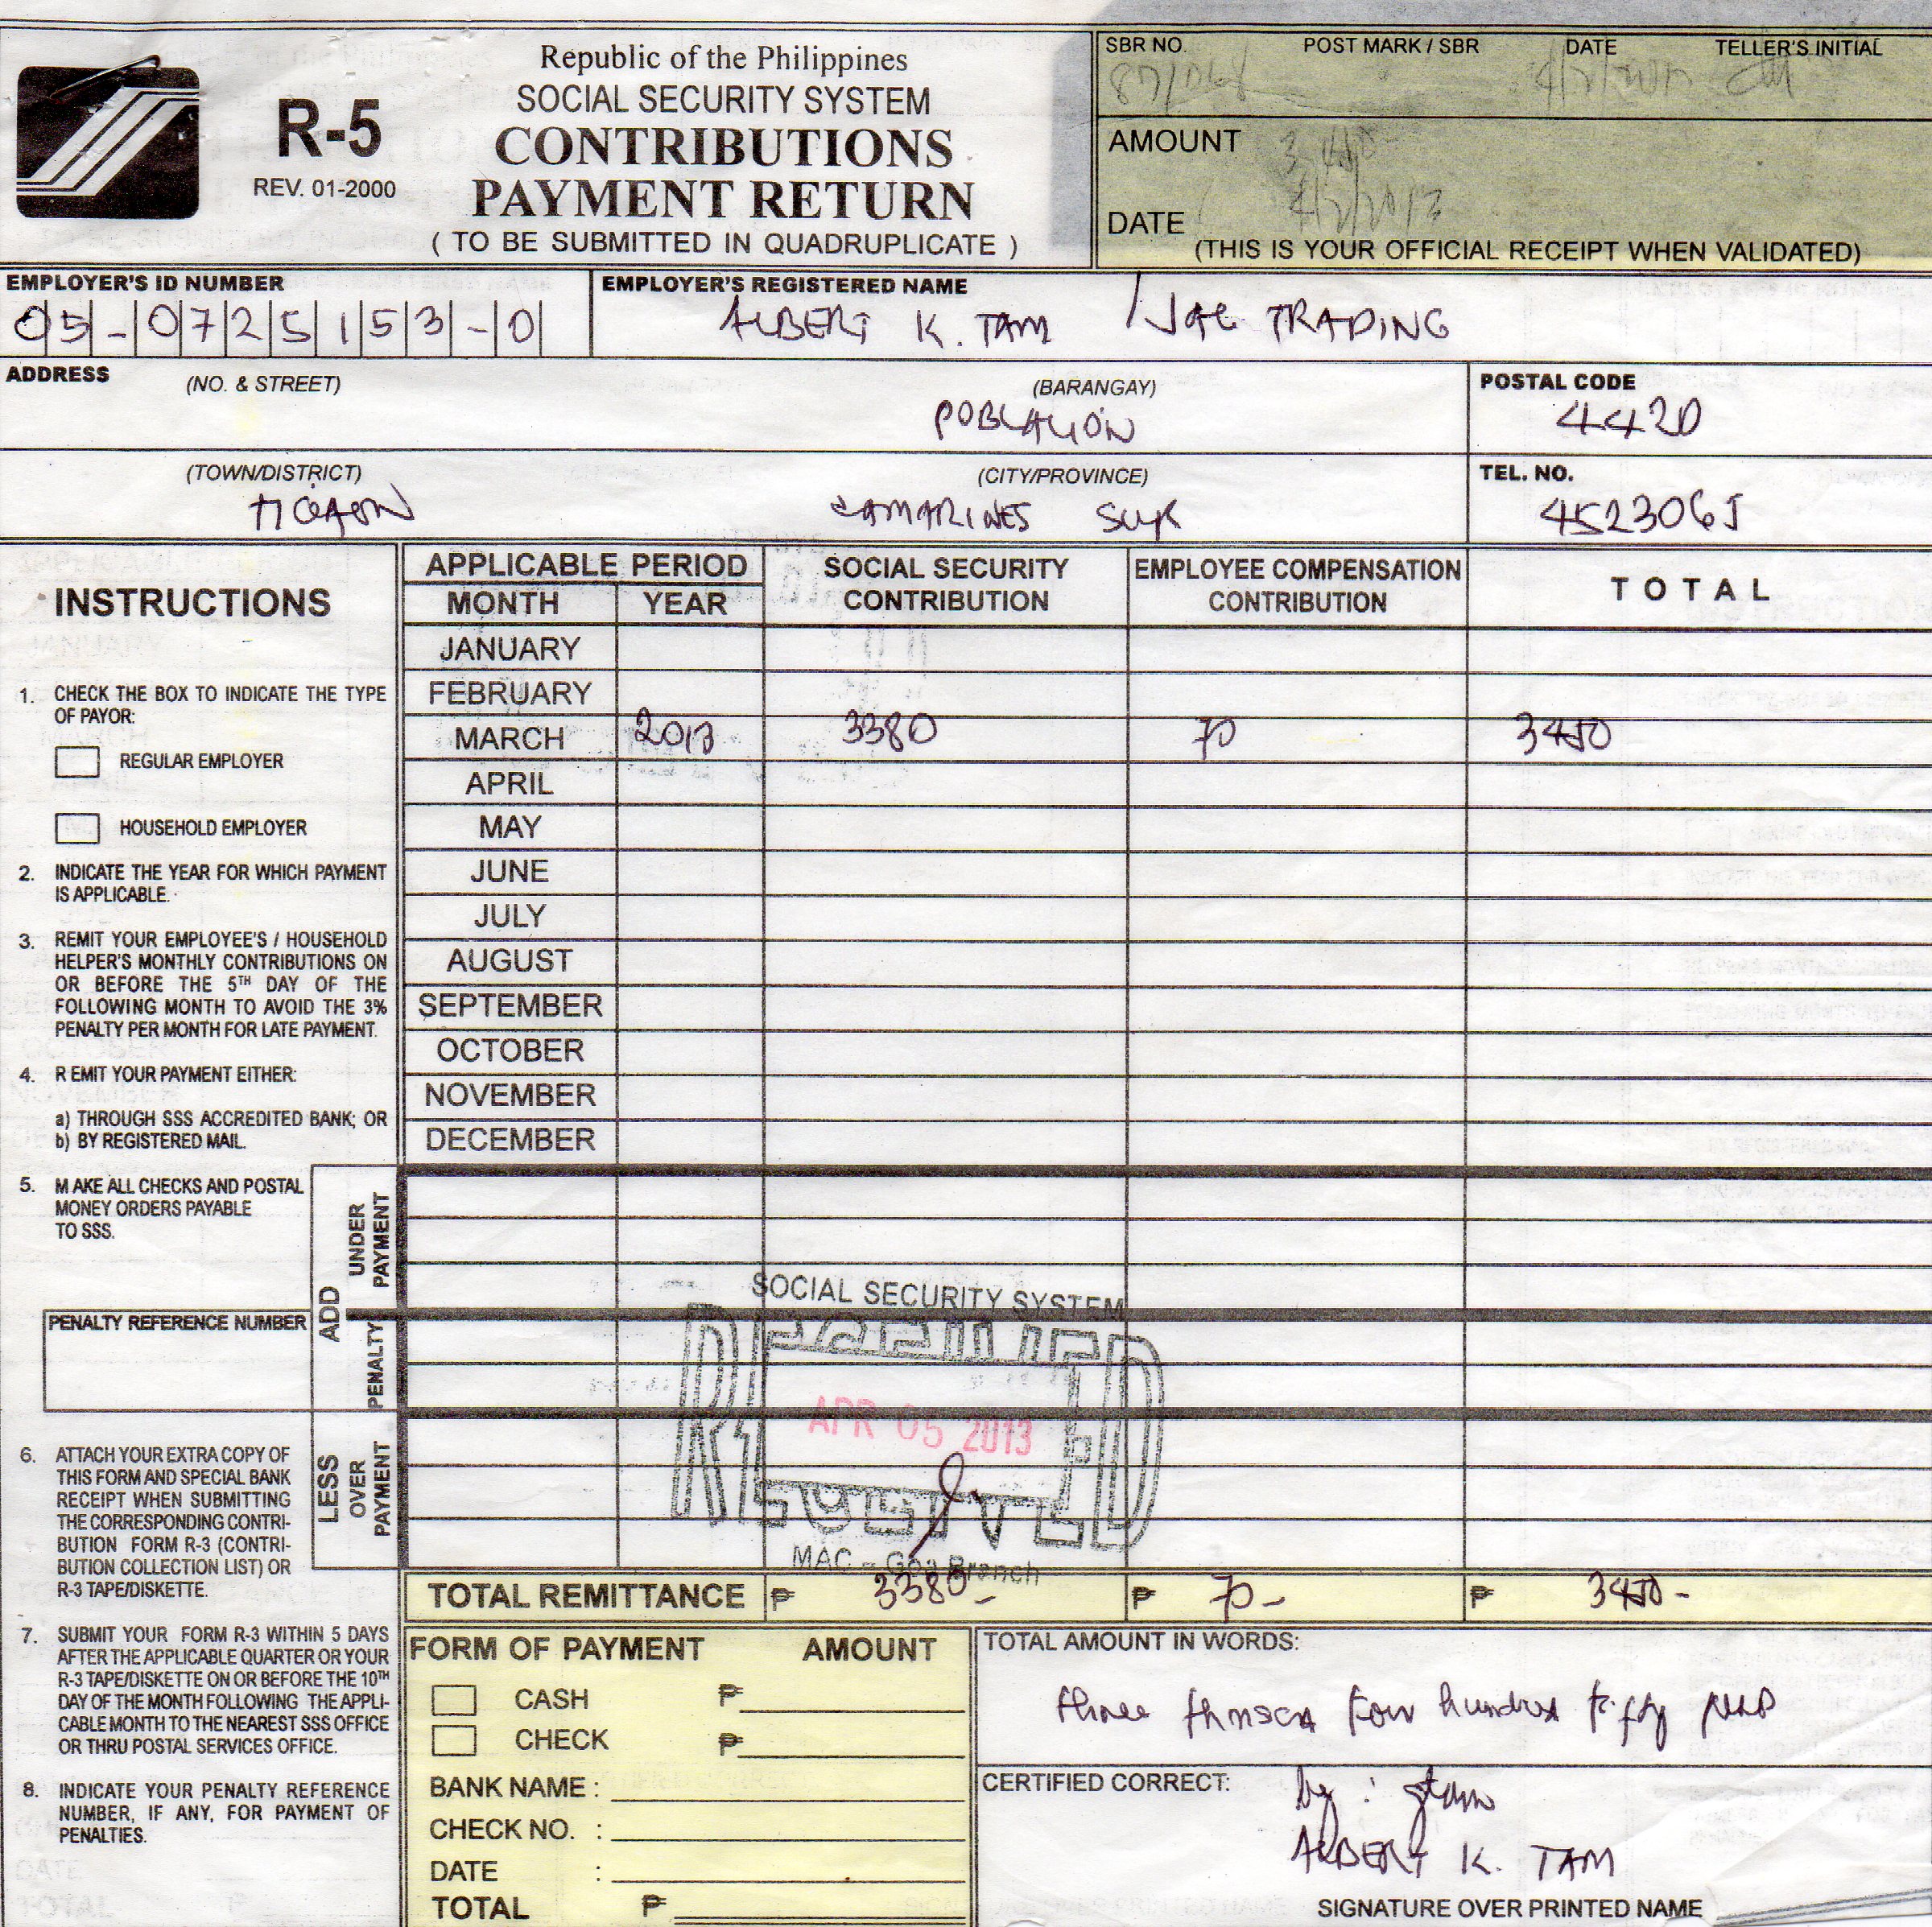 Republic of the Philippines
SOCIAL SECURITY SYSTEM
CONTRIBUTIONS
PAYMENT RETURN
( TO BE SUBMITTED IN QUADRUPLICATE )
R-5
REV. 01-2000
SBR NO. POST MARK / SBR DATE TELLER'S INITIAL
AMOUNT
DATE 4/2/2013
(THIS IS YOUR OFFICIAL RECEIPT WHEN VALIDATED)
EMPLOYER'S ID NUMBER
05-0725153-0
EMPLOYER'S REGISTERED NAME
ALBERT K. TAM / JAC TRADING
ADDRESS (NO. & STREET) (BARANGAY)
POBLACION
POSTAL CODE
4420
(TOWN/DISTRICT) (CITY/PROVINCE)
TIGAON CAMARINES SUR
TEL. NO.
4523065
INSTRUCTIONS
1. CHECK THE BOX TO INDICATE THE TYPE
OF PAYOR:
REGULAR EMPLOYER
HOUSEHOLD EMPLOYER
2. INDICATE THE YEAR FOR WHICH PAYMENT
IS APPLICABLE.
3. REMIT YOUR EMPLOYEE'S / HOUSEHOLD
HELPER'S MONTHLY CONTRIBUTIONS ON
OR BEFORE THE 5TH DAY OF THE
FOLLOWING MONTH TO AVOID THE 3%
PENALTY PER MONTH FOR LATE PAYMENT.
4. R EMIT YOUR PAYMENT EITHER:
a) THROUGH SSS ACCREDITED BANK; OR
b) BY REGISTERED MAIL.
5. M AKE ALL CHECKS AND POSTAL
MONEY ORDERS PAYABLE
TO SSS.
PENALTY REFERENCE NUMBER
6. ATTACH YOUR EXTRA COPY OF
THIS FORM AND SPECIAL BANK
RECEIPT WHEN SUBMITTING
THE CORRESPONDING CONTRI-
BUTION FORM R-3 (CONTRI-
BUTION COLLECTION LIST) OR
R-3 TAPE/DISKETTE.
7. SUBMIT YOUR FORM R-3 WITHIN 5 DAYS
AFTER THE APPLICABLE QUARTER OR YOUR
R-3 TAPE/DISKETTE ON OR BEFORE THE 10TH
DAY OF THE MONTH FOLLOWING THE APPLI-
CABLE MONTH TO THE NEAREST SSS OFFICE
OR THRU POSTAL SERVICES OFFICE.
8. INDICATE YOUR PENALTY REFERENCE
NUMBER, IF ANY, FOR PAYMENT OF
PENALTIES.
APPLICABLE PERIOD
MONTH YEAR
SOCIAL SECURITY
CONTRIBUTION
EMPLOYEE COMPENSATION
CONTRIBUTION
TOTAL
JANUARY
FEBRUARY
MARCH 2013 3380 70 3450
APRIL
MAY
JUNE
JULY
AUGUST
SEPTEMBER
OCTOBER
NOVEMBER
DECEMBER
ADD
UNDER
PAYMENT
PENALTY
LESS
OVER
PAYMENT
SOCIAL SECURITY SYSTEM
RECEIVED
APR 05 2013
MAC - Goa Branch
TOTAL REMITTANCE ₱ 3380- ₱ 70- ₱ 3450-
FORM OF PAYMENT AMOUNT
CASH ₱
CHECK ₱
BANK NAME :
CHECK NO. :
DATE :
TOTAL ₱
TOTAL AMOUNT IN WORDS:
three four hundred fifty
CERTIFIED CORRECT:
by :
ALBERT K. TAM
SIGNATURE OVER PRINTED NAME